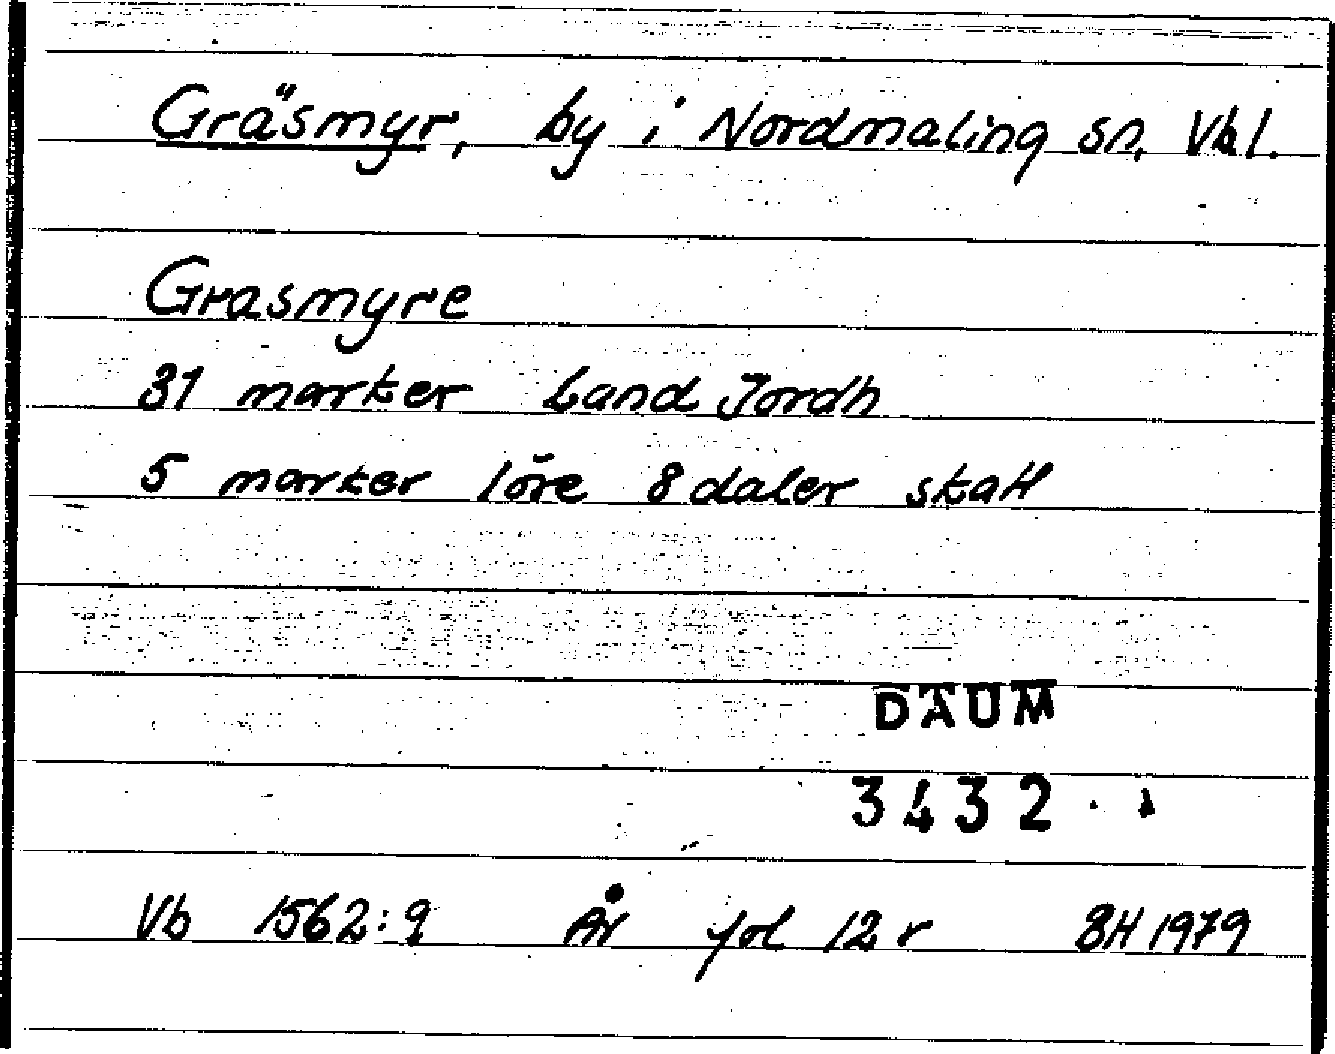 Gräsmyr, by i Nordmaling sn, Vbl.
Grasmyre
31 marker Land Jordh
5 marker löre 8 daler skatt
DAUM
3432
Vb 1562:9 År fol 12 r BH 1979